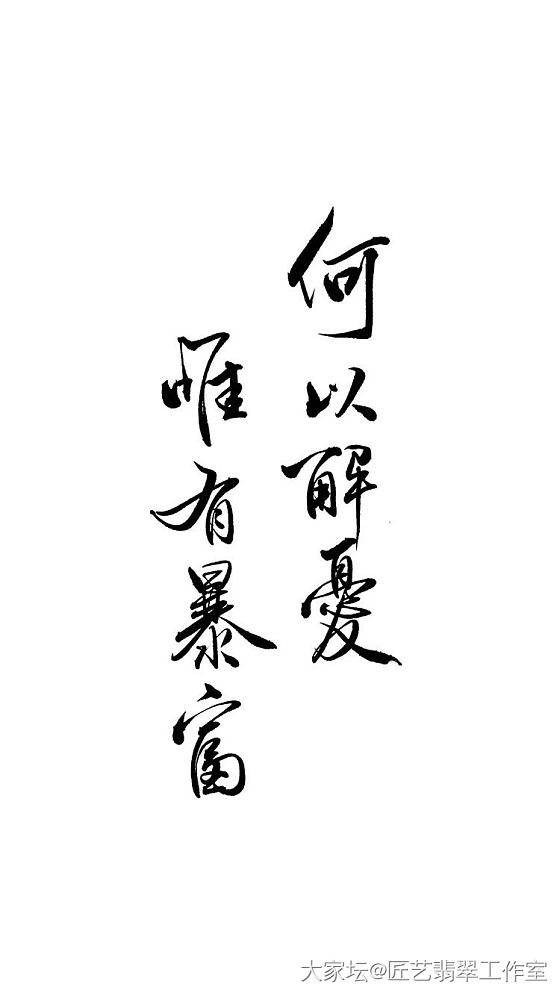 何以解憂
惟有暴富
大家坛@匠艺翡翠工作室